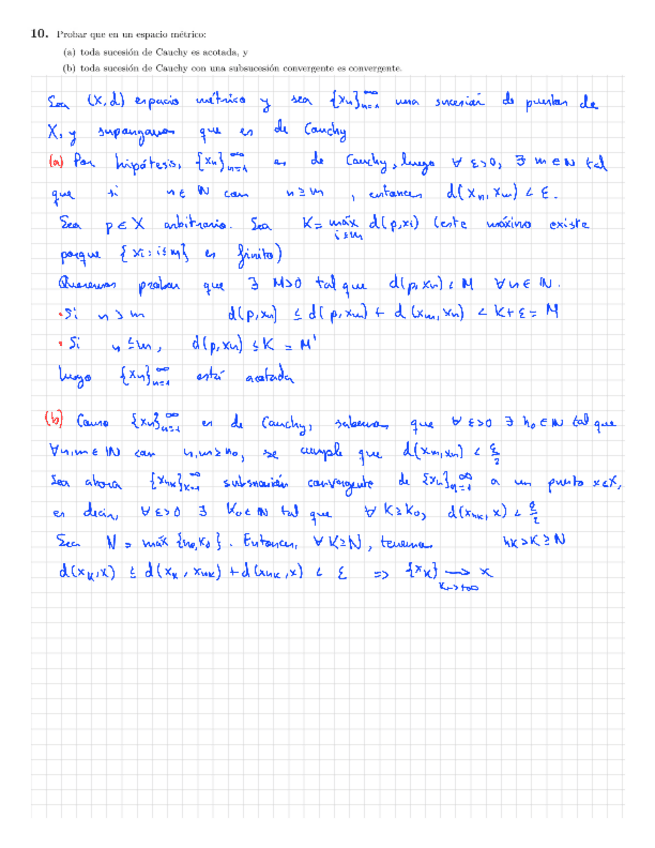 10. Probar que en un espacio métrico:
(a) toda sucesión de Cauchy es acotada, y
(b) toda sucesión de Cauchy con una subsucesión convergente es convergente.
Sea (X,d) espacio métrico y sea {xₙ}ₙ₌₁^∞ una sucesión de puntos de
X, y supongamos que es de Cauchy
(a) Por hipótesis, {xₙ}ₙ₌₁^∞ es de Cauchy, luego ∀ ε>0, ∃ m∈ℕ tal
que si n∈ℕ con n≥m, entonces d(xₙ,xₘ) < ε.
Sea p∈X arbitrario. Sea K = máx_{i≤m} d(p,xᵢ) (este máximo existe
porque {xᵢ: i≤m} es finito)
Queremos probar que ∃ M>0 tal que d(p,xₙ) < M ∀n∈ℕ.
• Si n>m d(p,xₙ) ≤ d(p,xₘ) + d(xₘ,xₙ) < K+ε = M
• Si n≤m, d(p,xₙ) ≤ K = M'
luego {xₙ}ₙ₌₁^∞ está acotada
(b) Como {xₙ}ₙ₌₁^∞ es de Cauchy, sabemos que ∀ ε>0 ∃ n₀∈ℕ tal que
∀n,m∈ℕ con n,m≥n₀, se cumple que d(xₘ,xₙ) < ε/2
Sea ahora {xₙₖ}ₖ₌₁^∞ subsucesión convergente de {xₙ}ₙ₌₁^∞ a un punto x∈X,
es decir, ∀ε>0 ∃ K₀∈ℕ tal que ∀ K≥K₀, d(xₙₖ,x) < ε/2
Sea N = máx{n₀,K₀}. Entonces, ∀K≥N, tenemos nₖ>K≥N
d(xₖ,x) ≤ d(xₖ,xₙₖ) + d(xₙₖ,x) < ε ⇒ {xₖ} ⟶_{K→+∞} x